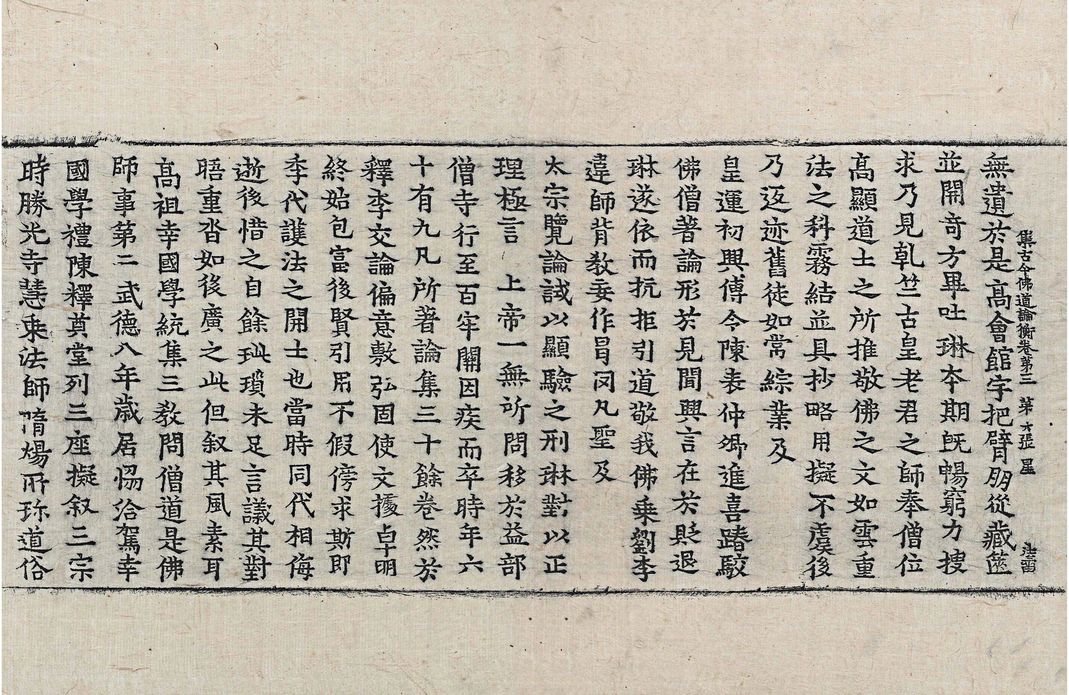 無遺於是高會館宇把臂朋從藏篋
集古今佛道論衡卷第三 第六張 星
並開奇方畢吐琳本期既暢窮力捜
求乃見乹竺古皇老君之師奉僧位
高顯道士之所推敬佛之文如雲重
法之科霧結並具抄略用擬不虞後
乃迈迹舊徒如常綜業及
皇運初興傅令陳表仲卿進喜踳駮
佛僧著論形於見聞興言在於貶退
琳遂依而抗拒引道敬我佛乗劉李
違師背教妄作冐罔凡聖及
太宗覽論誡以顯驗之刑琳對以正
理極言 上帝一無所問移於益部
僧寺行至百牢關因疾而卒時年六
十有九凡所著論集三十餘卷然於
釋李交論偏意敷弘固使文據卓明
終始包富後賢引用不假傍求斯即
季代護法之開士也當時同代相侮
逝後惜之自餘玼瓆未足言議其對
晤重沓如後廣之此但叙其風素耳
高祖幸國學統集三教問僧道是佛
師事第二武德八年歲居恊洽駕幸
國學禮陳釋奠堂列三座擬叙三宗
時勝光寺慧乗法師隋煬所珎道俗